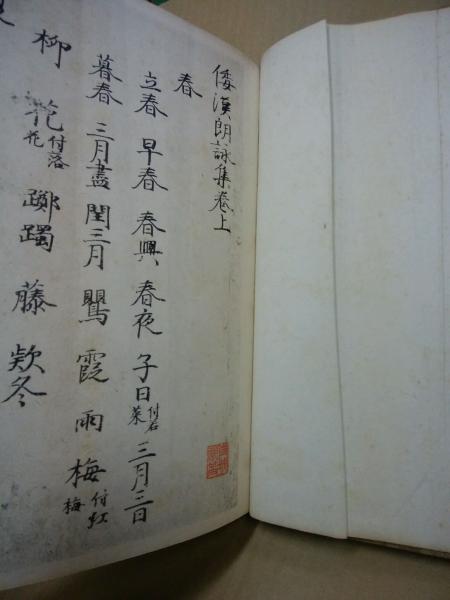 倭漢朗詠集卷上
春
立春 早春 春興 春夜 子日付若菜 三月三日
暮春 三月盡 閏三月 鸎 霞 雨 梅付紅梅
柳 花付落花 躑躅 藤 欵冬